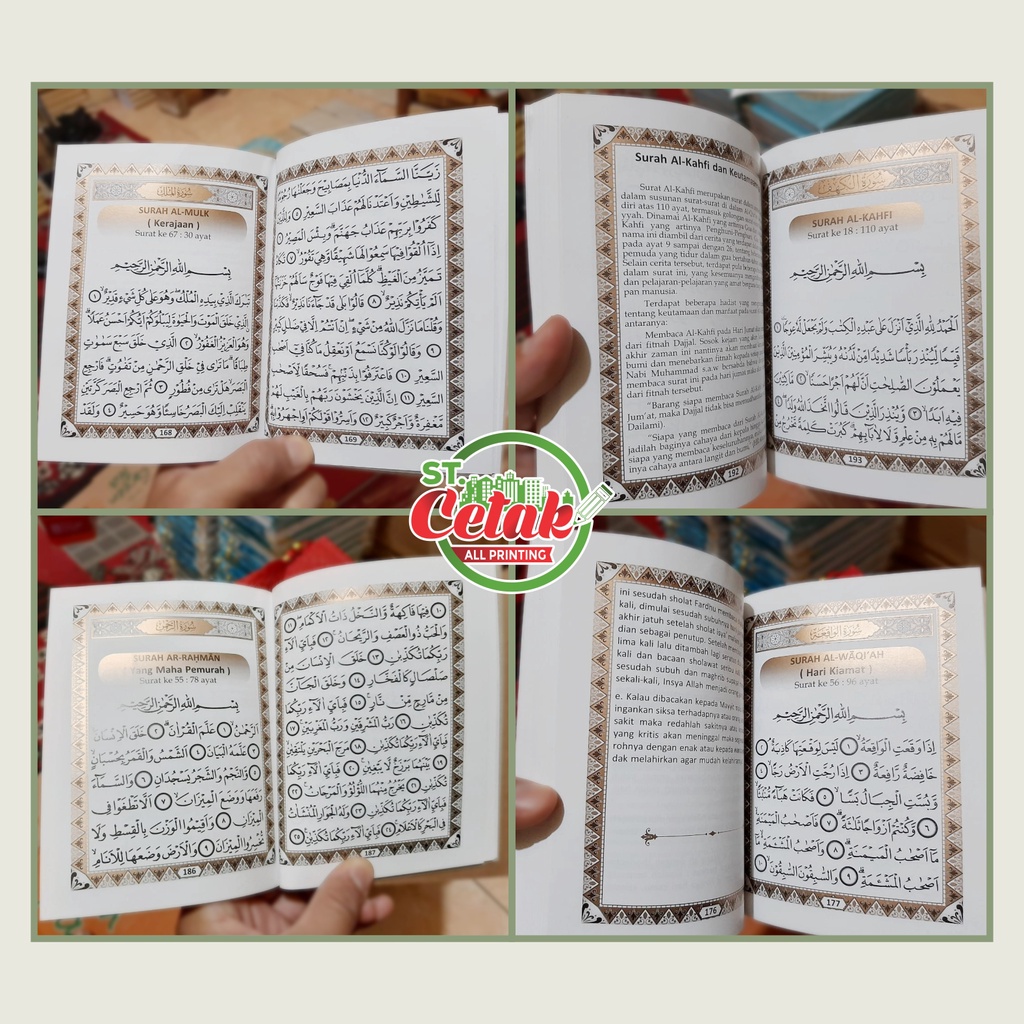 سورة الملك
SURAH AL-MULK
( Kerajaan )
Surat ke 67 : 30 ayat
بِسْمِ اللّٰهِ الرَّحْمٰنِ الرَّحِيْمِ
تَبٰرَكَ الَّذِيْ بِيَدِهِ الْمُلْكُ وَهُوَ عَلٰى كُلِّ شَيْءٍ قَدِيْرٌ ١
الَّذِيْ خَلَقَ الْمَوْتَ وَالْحَيٰوةَ لِيَبْلُوَكُمْ اَيُّكُمْ اَحْسَنُ عَمَلًا
وَهُوَ الْعَزِيْزُ الْغَفُوْرُ ٢ الَّذِيْ خَلَقَ سَبْعَ سَمٰوٰتٍ
طِبَاقًا مَا تَرٰى فِيْ خَلْقِ الرَّحْمٰنِ مِنْ تَفٰوُتٍ فَارْجِعِ
الْبَصَرَ هَلْ تَرٰى مِنْ فُطُوْرٍ ٣ ثُمَّ ارْجِعِ الْبَصَرَ كَرَّتَيْنِ
يَنْقَلِبْ اِلَيْكَ الْبَصَرُ خَاسِئًا وَّهُوَ حَسِيْرٌ ٤ وَلَقَدْ
168
زَيَّنَّا السَّمَاۤءَ الدُّنْيَا بِمَصَابِيْحَ وَجَعَلْنٰهَا رُجُوْمًا
لِّلشَّيٰطِيْنِ وَاَعْتَدْنَا لَهُمْ عَذَابَ السَّعِيْرِ ٥ وَلِلَّذِيْنَ
كَفَرُوْا بِرَبِّهِمْ عَذَابُ جَهَنَّمَ وَبِئْسَ الْمَصِيْرُ ٦
اِذَآ اُلْقُوْا فِيْهَا سَمِعُوْا لَهَا شَهِيْقًا وَّهِيَ تَفُوْرُ ٧ تَكَادُ
تَمَيَّزُ مِنَ الْغَيْظِ كُلَّمَآ اُلْقِيَ فِيْهَا فَوْجٌ سَاَلَهُمْ خَزَنَتُهَآ
اَلَمْ يَأْتِكُمْ نَذِيْرٌ ٨ قَالُوْا بَلٰى قَدْ جَاۤءَنَا نَذِيْرٌ فَكَذَّبْنَا
وَقُلْنَا مَا نَزَّلَ اللّٰهُ مِنْ شَيْءٍ اِنْ اَنْتُمْ اِلَّا فِيْ ضَلٰلٍ كَبِيْرٍ
٩ وَقَالُوْا لَوْ كُنَّا نَسْمَعُ اَوْ نَعْقِلُ مَا كُنَّا فِيْٓ اَصْحٰبِ
السَّعِيْرِ ١٠ فَاعْتَرَفُوْا بِذَنْبِهِمْ فَسُحْقًا لِّاَصْحٰبِ
السَّعِيْرِ ١١ اِنَّ الَّذِيْنَ يَخْشَوْنَ رَبَّهُمْ بِالْغَيْبِ لَهُمْ
مَّغْفِرَةٌ وَّاَجْرٌ كَبِيْرٌ ١٢ وَاَسِرُّوْا قَوْلَكُمْ اَوِ اجْهَرُوْا بِهٖ
169
Surah Al-Kahfi dan Keutamaan
Surat Al-Kahfi merupakan surat
dalam susunan surat-surat di dalam Al-
diri atas 110 ayat, termasuk golongan
yyah. Dinamai Al-Kahfi yang artinya
Kahfi yang artinya Penghuni-Penghuni
nama ini diambil dari cerita yang terdapat
pada ayat 9 sampai dengan 26, tentang
pemuda yang tidur dalam gua bertahun
Selain cerita tersebut, terdapat pula
dalam surat ini, yang kesemuanya
dan pelajaran-pelajaran yang amat
pan manusia.
Terdapat beberapa hadist yang
tentang keutamaan dan manfaat pada
antaranya:
Membaca Al-Kahfi pada Hari Jumat
dari fitnah Dajjal. Sosok kejam yang
akhir zaman ini nantinya akan
bumi dan menebarkan fitnah kepada
Nabi Muhammad s.a.w bersabda
membaca surat ini pada hari jumat maka
dari fitnah tersebut.
"Barang siapa membaca Surah Al-
Jum'at, maka Dajjal tidak bisa
Dailami).
"Siapa yang membaca dari Surah
jadilah baginya cahaya dari kepala
siapa yang membaca keseluruhannya
inya cahaya antara langit dan bumi,
192
سورة الكهف
SURAH AL-KAHFI
Surat ke 18 : 110 ayat
بِسْمِ اللّٰهِ الرَّحْمٰنِ الرَّحِيْمِ
اَلْحَمْدُ لِلّٰهِ الَّذِيْٓ اَنْزَلَ عَلٰى عَبْدِهِ الْكِتٰبَ وَلَمْ يَجْعَلْ لَّهٗ عِوَجًا ١
قَيِّمًا لِّيُنْذِرَ بَأْسًا شَدِيْدًا مِّنْ لَّدُنْهُ وَيُبَشِّرَ الْمُؤْمِنِيْنَ الَّذِيْنَ
يَعْمَلُوْنَ الصّٰلِحٰتِ اَنَّ لَهُمْ اَجْرًا حَسَنًا ٢ مَّاكِثِيْنَ
فِيْهِ اَبَدًا ٣ وَّيُنْذِرَ الَّذِيْنَ قَالُوا اتَّخَذَ اللّٰهُ وَلَدًا ٤
مَا لَهُمْ بِهٖ مِنْ عِلْمٍ وَّلَا لِاٰبَاۤىِٕهِمْ كَبُرَتْ كَلِمَةً تَخْرُجُ مِنْ
193
ST.
Cetak
ALL PRINTING
سورة الرحمن
SURAH AR-RAḤMĀN
(Yang Maha Pemurah )
Surat ke 55 : 78 ayat
بِسْمِ اللّٰهِ الرَّحْمٰنِ الرَّحِيْمِ
اَلرَّحْمٰنُ ١ عَلَّمَ الْقُرْاٰنَ ٢ خَلَقَ الْاِنْسَانَ
٣ عَلَّمَهُ الْبَيَانَ ٤ اَلشَّمْسُ وَالْقَمَرُ بِحُسْبَانٍ
٥ وَّالنَّجْمُ وَالشَّجَرُ يَسْجُدَانِ ٦ وَالسَّمَاۤءَ
رَفَعَهَا وَوَضَعَ الْمِيْزَانَ ٧ اَلَّا تَطْغَوْا فِى
الْمِيْزَانِ ٨ وَاَقِيْمُوا الْوَزْنَ بِالْقِسْطِ وَلَا
تُخْسِرُوا الْمِيْزَانَ ٩ وَالْاَرْضَ وَضَعَهَا لِلْاَنَامِ
186
١٠ فِيْهَا فَاكِهَةٌ وَّالنَّخْلُ ذَاتُ الْاَكْمَامِ ١١
وَالْحَبُّ ذُو الْعَصْفِ وَالرَّيْحَانُ ١٢ فَبِاَيِّ اٰلَاۤءِ
رَبِّكُمَا تُكَذِّبٰنِ ١٣ خَلَقَ الْاِنْسَانَ مِنْ
صَلْصَالٍ كَالْفَخَّارِ ١٤ وَخَلَقَ الْجَاۤنَّ
مِنْ مَّارِجٍ مِّنْ نَّارٍ ١٥ فَبِاَيِّ اٰلَاۤءِ رَبِّكُمَا
تُكَذِّبٰنِ ١٦ رَبُّ الْمَشْرِقَيْنِ وَرَبُّ الْمَغْرِبَيْنِ ١٧
فَبِاَيِّ اٰلَاۤءِ رَبِّكُمَا تُكَذِّبٰنِ ١٨ مَرَجَ الْبَحْرَيْنِ يَلْتَقِيٰنِ
١٩ بَيْنَهُمَا بَرْزَخٌ لَّا يَبْغِيٰنِ ٢٠ فَبِاَيِّ اٰلَاۤءِ رَبِّكُمَا
تُكَذِّبٰنِ ٢١ يَخْرُجُ مِنْهُمَا اللُّؤْلُؤُ وَالْمَرْجَانُ ٢٢
فَبِاَيِّ اٰلَاۤءِ رَبِّكُمَا تُكَذِّبٰنِ ٢٣ وَلَهُ الْجَوَارِ الْمُنْشَاٰتُ
فِى الْبَحْرِ كَالْاَعْلَامِ ٢٤ فَبِاَيِّ اٰلَاۤءِ رَبِّكُمَا تُكَذِّبٰنِ ٢٥
187
ini sesudah sholat Fardhu
kali, dimulai sesudah subuhnya
akhir jatuh setelah sholat Isya'
dian sebagai penutup. Setelah
lima kali lalu ditambah lagi
kali dan bacaan sholawat
sesudah subuh dan maghrib
sekali-kali, Insya Allah menjadi orang
e. Kalau dibacakan kepada Mayat
ingankan siksa terhadapnya atau
sakit maka redahlah sakitnya atau
yang kritis akan meninggal maka
rohnya dengan enak atau kepada
dak melahirkan agar mudah
176
سورة الواقعة
SURAH AL-WĀQI'AH
( Hari Kiamat )
Surat ke 56 : 96 ayat
بِسْمِ اللّٰهِ الرَّحْمٰنِ الرَّحِيْمِ
اِذَا وَقَعَتِ الْوَاقِعَةُ ١ لَيْسَ لِوَقْعَتِهَا كَاذِبَةٌ ٢
خَافِضَةٌ رَّافِعَةٌ ٣ اِذَا رُجَّتِ الْاَرْضُ رَجًّا ٤
وَّبُسَّتِ الْجِبَالُ بَسًّا ٥ فَكَانَتْ هَبَاۤءً مُّنْۢبَثًّا
٦ وَّكُنْتُمْ اَزْوَاجًا ثَلٰثَةً ٧ فَاَصْحٰبُ الْمَيْمَنَةِ
مَآ اَصْحٰبُ الْمَيْمَنَةِ ٨ وَاَصْحٰبُ الْمَشْـَٔمَةِ مَآ
اَصْحٰبُ الْمَشْـَٔمَةِ ٩ وَالسّٰبِقُوْنَ السّٰبِقُوْنَ ١٠
177